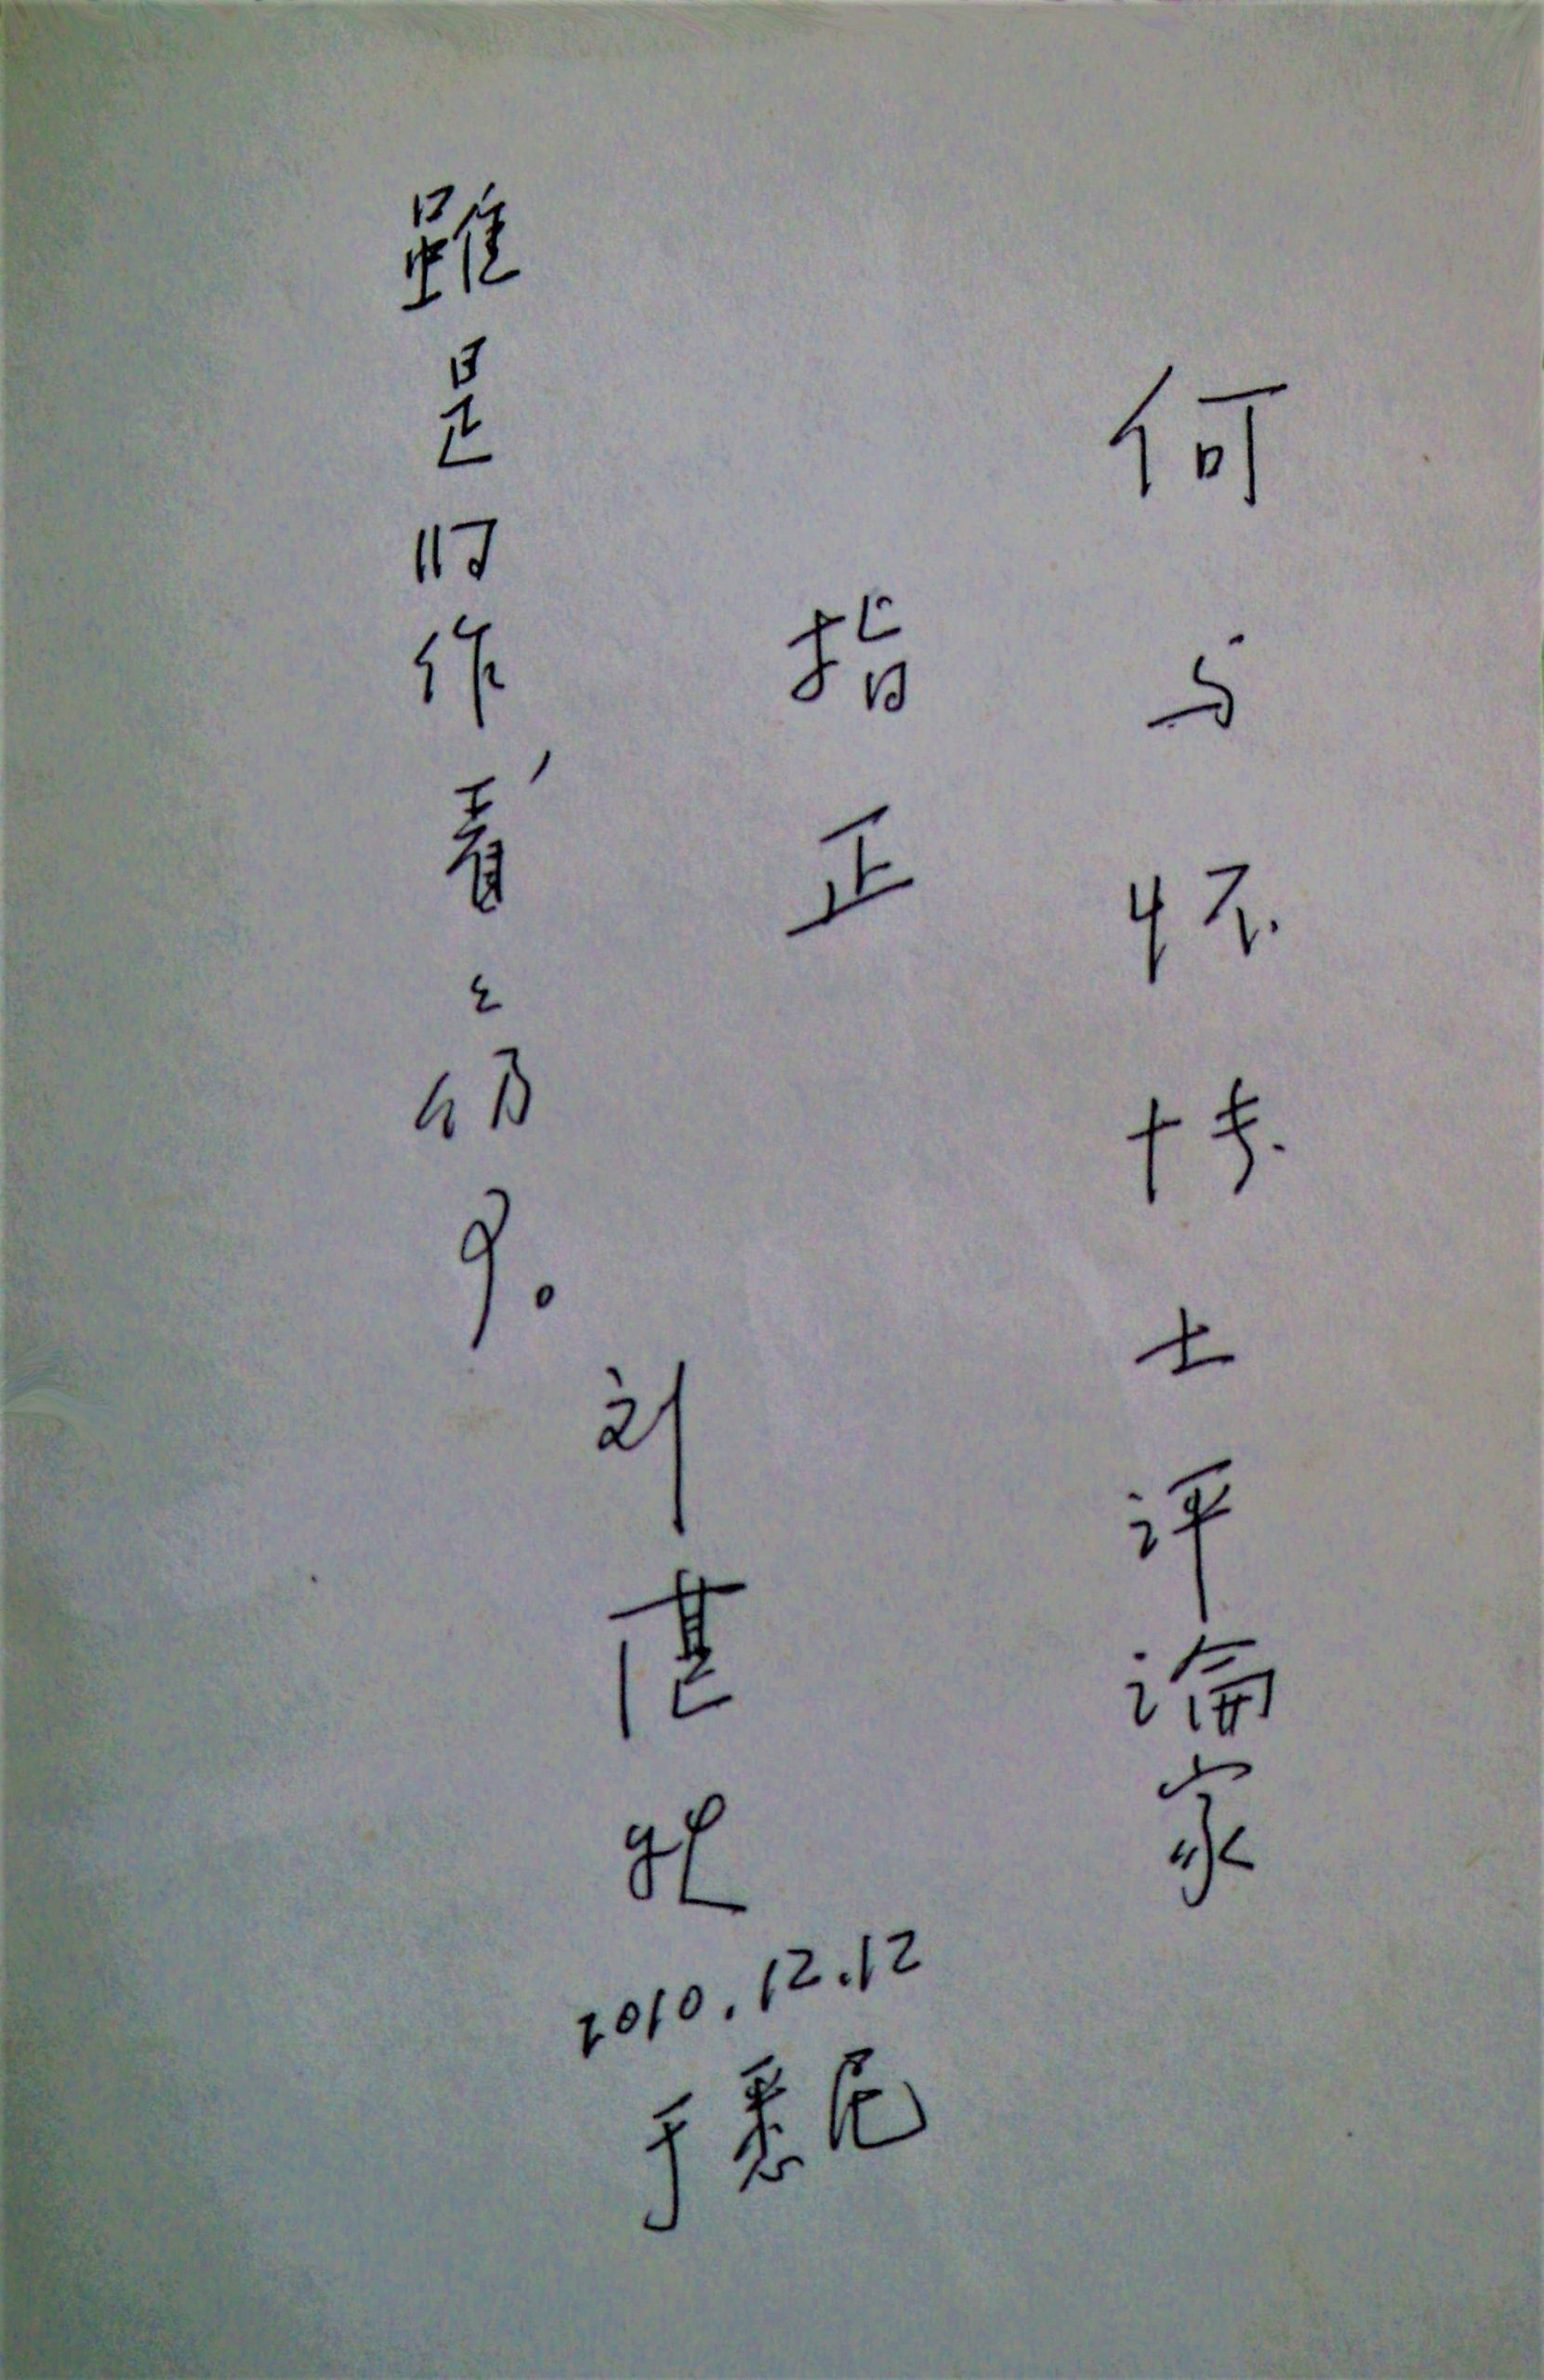 何与怀博士评論家
指正
雖是旧作，看々仍可。
刘湛秋
2010.12.12
于悉尼